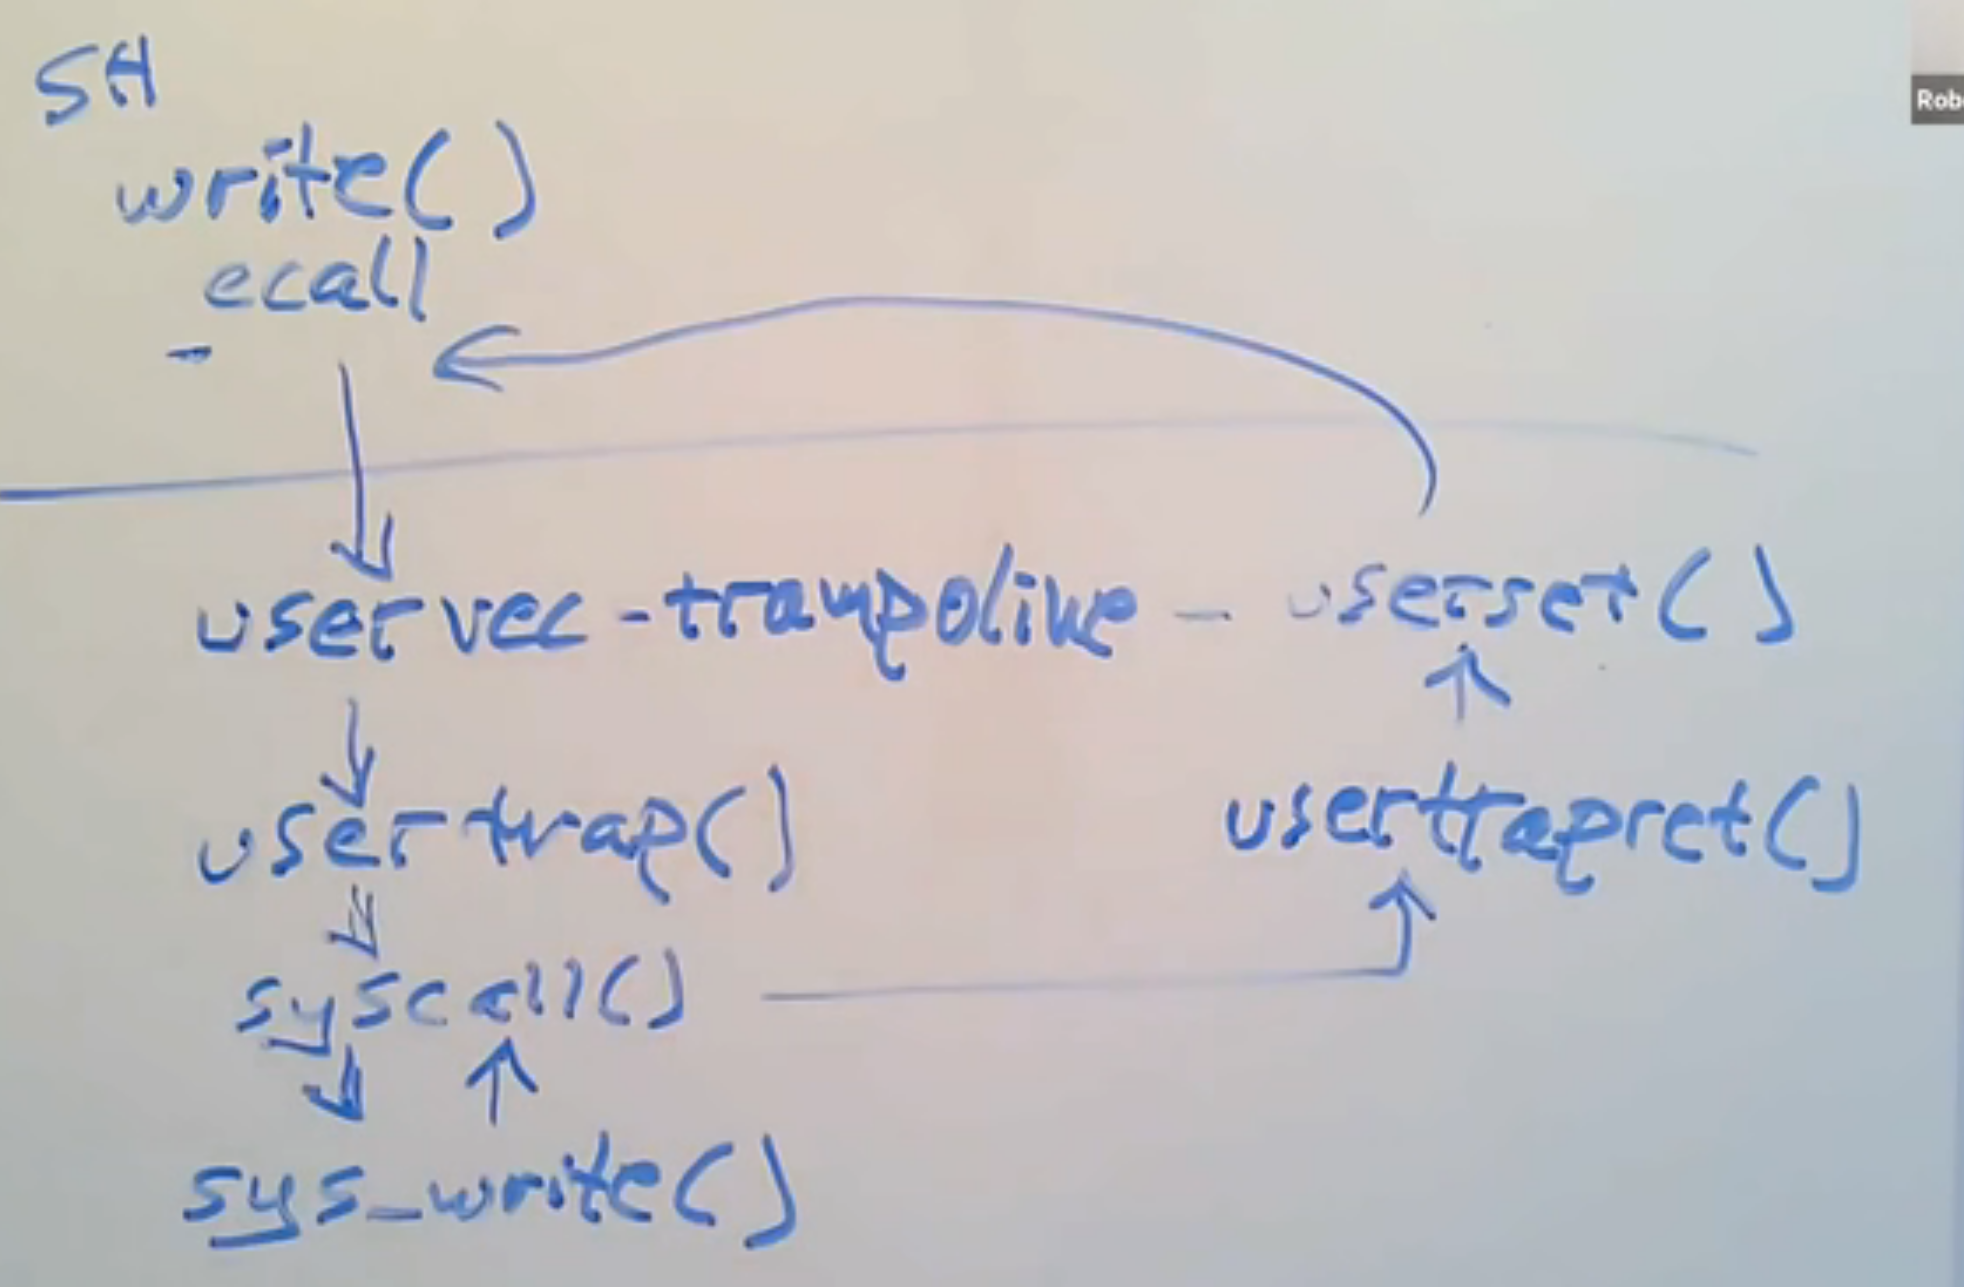 SH
write()
ecall
uservec - trampoline - userset()
usertrap()
usertrapret()
syscall()
sys_write()
Rob